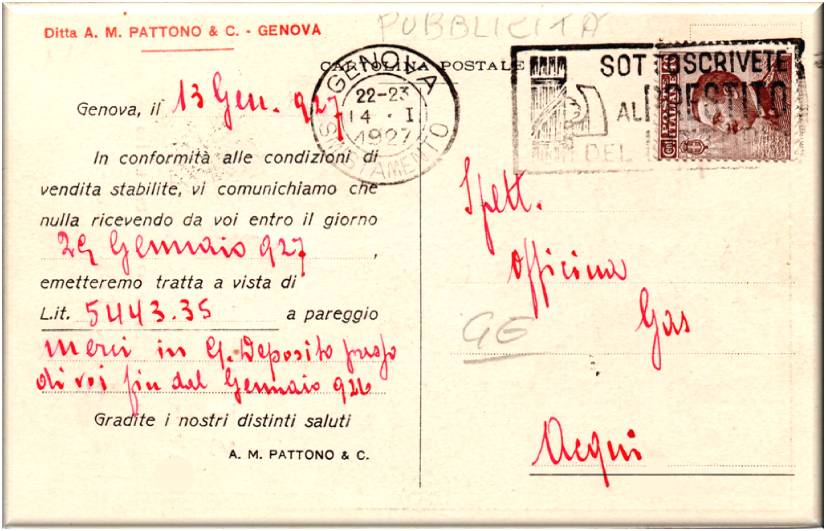 Ditta A. M. PATTONO & C. - GENOVA
PUBBLICITÀ
CARTOLINA POSTALE
GENOVA
22-23
14 · I
1927
SMISTAMENTO
SOTTOSCRIVETE
AL PRESTITO
DEL
Genova, il 13 Gen. 927
In conformità alle condizioni di
vendita stabilite, vi comunichiamo che
nulla ricevendo da voi entro il giorno
29 Gennaio 927,
emetteremo tratta a vista di
Lit. 5443.35 a pareggio
merci in G. Deposito presso
di voi fin dal Gennaio 926
Gradite i nostri distinti saluti
A. M. PATTONO & C.
Spett.
Officina
Gas
GE
Acqui